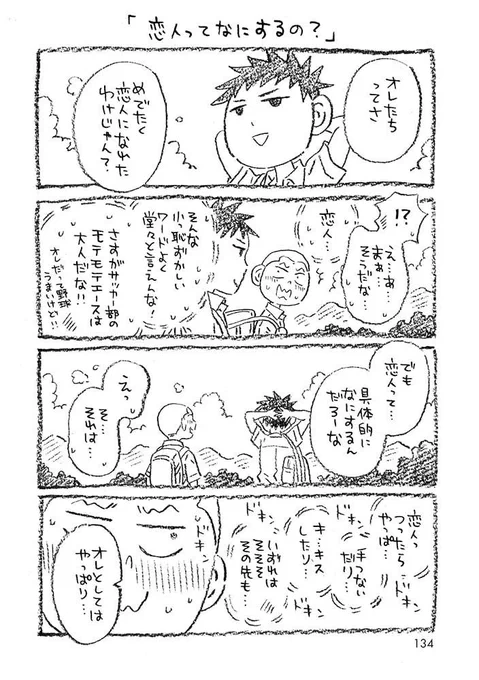 「恋人ってなにするの？」
オレたち
ってさ
めでたく
恋人になれた
わけじゃん？
!?
え…ぁ…
まぁ…
そうだな
恋人…
そんな
小っ恥ずかしい
ワードよく
堂々と言えんな！
さすがサッカー部の
モテモテエースは
大人だな!!
オレだって野球
うまいけど!!
でも
恋人って…
具体的に
なにするん
だろーな
えっ
そ…
それは…
恋人っ
つったら
やっぱ…
手つない
だり…
キ…キス
したり…
いずれは
そそそ
その先も…
ドキン
ドキン
ドキン
ドキン
ドキン
オレとしては
やっぱり…
134